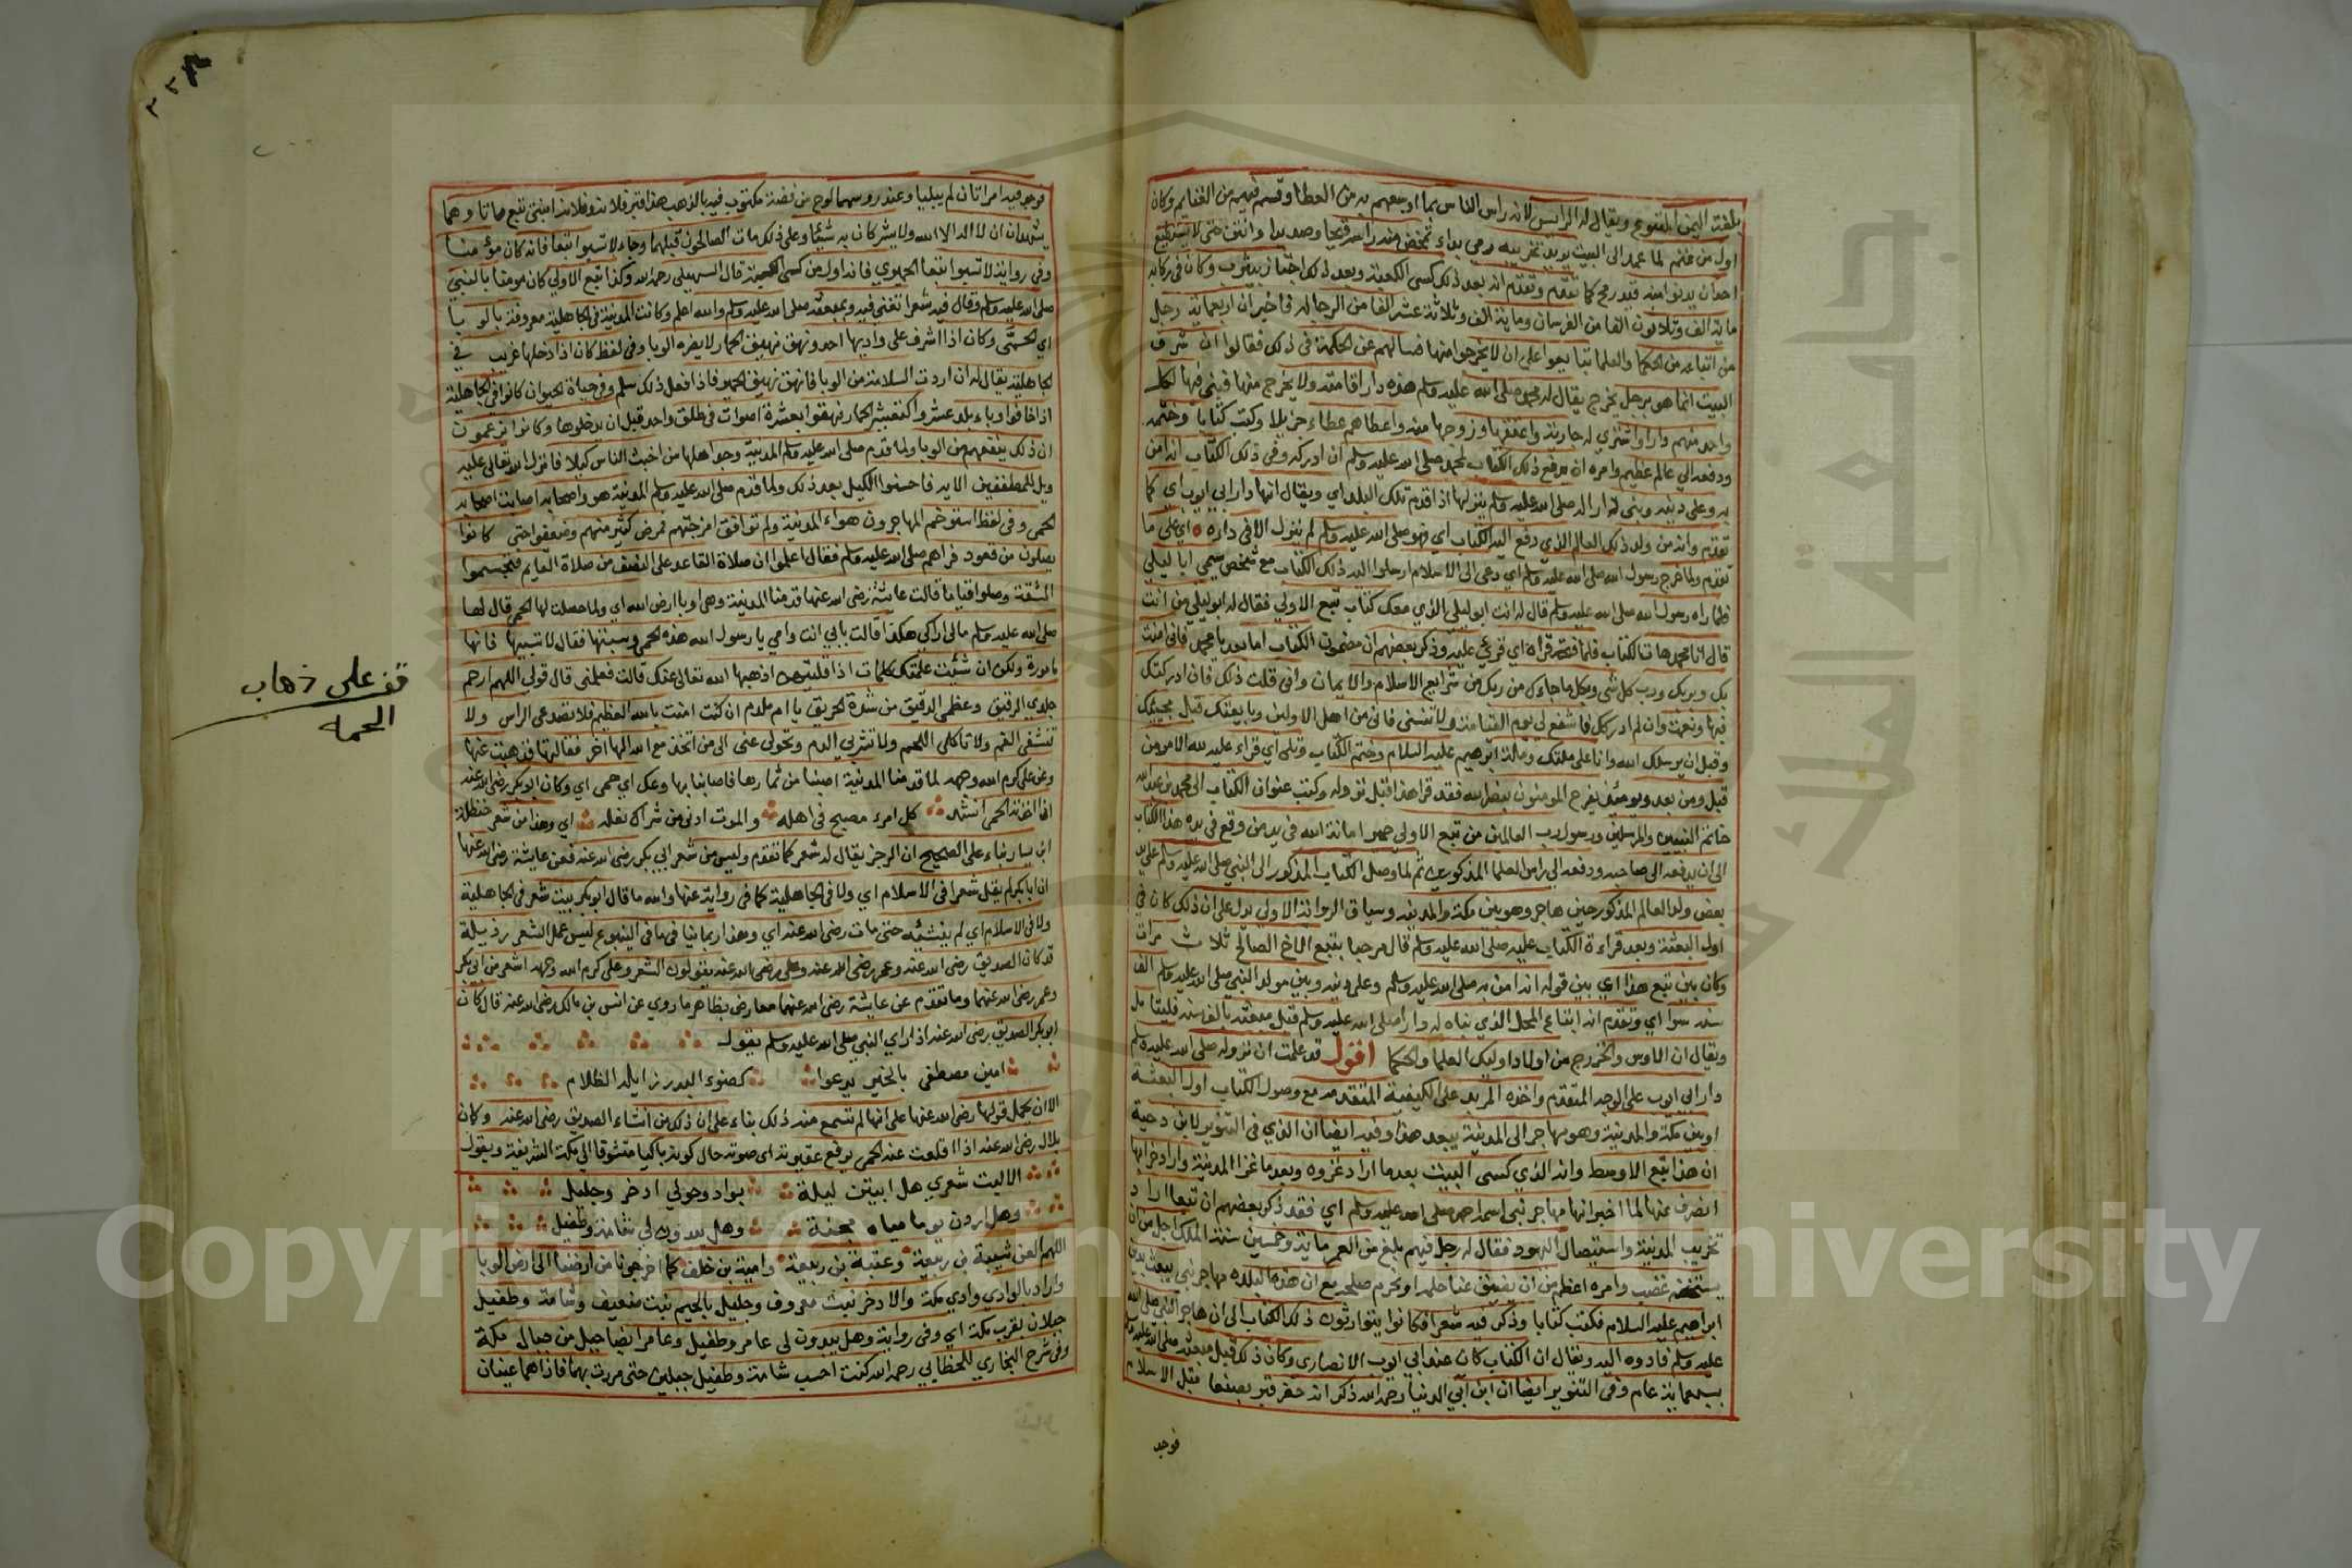 بلغة اليمن المتبوع ويقال له الرايس لانه راس الناس بما اوسعهم به من العطا وقسم فيهم من الغنايم وكان
اول من غنم لما عمد الى البيت يريد تخريبه رمي بداء تمخض منه راسه قيحا وصديدا وانتن حتى لا يستطيع
احد ان يدنوا منه قيد رمح كما تقدم وتقدم انه بعد ذلك كسى الكعبة وبعد ذلك اجتاز بيثرب وكان في ركابه
ماية الف وثلاثون الفا من الفرسان وماية الف وثلاثة عشر الفا من الرجاله فاخبر ان اربعماية رجل
من اتباعه من الحكما والعلما تبايعوا على ان لا يخرجوا منها فسالهم عن الحكمة في ذلك فقالوا ان شرف
البيت انما هو برجل يخرج يقال له محمد صلى الله عليه وسلم هذه دار اقامته ولا يخرج منها فبنى فيها لكل
واحد منهم دارا واشترى له جارية واعتقها وزوجها منه واعطاهم عطاء جزيلا وكتب كتابا وختمه
ودفعه الى عالم عظيم وامره ان يدفع ذلك الكتاب لمحمد صلى الله عليه وسلم ان ادركه وفي ذلك الكتاب انه امن
به وعلى دينه وبنى له دارا له صلى الله عليه وسلم ينزلها اذا قدم تلك البلد اي ويقال انها دار ابي ايوب اي كما
تقدم وانه من ولد ذلك العالم الذي دفع اليه الكتاب اي فهو صلى الله عليه وسلم لم ينزل الا في داره اي على ما
تقدم ولما خرج رسول الله صلى الله عليه وسلم اي دعى الى الاسلام ارسلوا اليه ذلك الكتاب مع شخص يسمى ابا ليلى
فلما راه رسول الله صلى الله عليه وسلم قال له انت ابو ليلى الذي معك كتاب تبع الاول فقال له ابو ليلى من انت
قال انا محمد هات الكتاب فلما فتحه قراه اي قرئ عليه وذكر بعضهم ان مضمون الكتاب اما بعد يا محمد فاني امنت
بك وبربك ورب كل شى وبكل ما جاءك من ربك من شرايع الاسلام والايمان واني قلت ذلك فان ادركتك
فبها ونعمت وان لم ادركك فاشفع لي يوم القيامة ولا تنسني فاني من امتك الاولين وبايعتك قبل مجيئك
وقبل ان يرسلك الله وانا على ملتك وملة ابرهيم عليه السلام وختم الكتاب وتلى اي قراء عليه لله الامر من
قبل ومن بعد ويومئذ يفرح المومنون بنصر الله فقد قرا هذا قبل نزوله وكتب عنوان الكتاب الى محمد بن عبد الله
خاتم النبيين والمرسلين ورسول رب العالمين من تبع الاول حمير امانة الله في يد من وقع في يده هذا الكتاب
الى ان يدفعه الى صاحبه ودفعه الى راس العلما المذكورين ثم لما وصل الكتاب المذكور الى النبي صلى الله عليه وسلم على يد
بعض ولد العالم المذكور حين هاجر وهو بين مكة والمدينه وسياق الرواية الاولى يدل على ان ذلك كان في
اول البعثة وبعد قراءة الكتاب عليه صلى الله عليه وسلم قال مرحبا بتبع الاخ الصالح ثلاث مرات
وكان بين تبع هذا اي بين قوله انه امن به صلى الله عليه وسلم وعلى دينه وبين مولد النبي صلى الله عليه وسلم الف
سنه سوا اي وتقدم انه ابتاع المحل الذي بناه له دارا صلى الله عليه وسلم قبل مبعثه بالف سنه فليتامل
ويقال ان الاوس والخزرج من اولاد اوليك العلما والحكما اقول قد علمت ان نزوله صلى الله عليه وسلم
دار ابي ايوب على الوجه المتقدم واخذه المربد على الكيفية المتقدمه مع وصول الكتاب اول البعثة
او بين مكة والمدينة وهو مهاجر الى المدينة يبعد هذا وفيه ايضا ان الذي في التنوير لابن دحية
ان هذا تبع الاوسط وانه الذي كسى البيت بعدما اراد غزوه وبعدما غزا المدينة واراد خرابها
انصرف عنها لما اخبر انها مهاجر نبى اسمه احمد صلى الله عليه وسلم اي فقد ذكر بعضهم ان تبعا اراد
تخريب المدينة واستيصال اليهود فقال له رجل منهم بلغ من العمر ماية وخمسين سنة الملك اجل من ان
يستخفه غضب وامره اعظم من ان يضيق عنا حلمه او نحرم صفحه مع ان هذه البلده مهاجر نبي يبعث بدين
ابراهيم عليه السلام فكتب كتابا وذكر فيه شعرا فكانوا يتوارثون ذلك الكتاب الى ان هاجر النبي صلى الله
عليه وسلم فادوه اليه ويقال ان الكتاب كان عند ابي ايوب الانصاري وكان ذلك قبل مبعثه صلى الله عليه وسلم
بسبعماية عام وفي التنوير ايضا ان ابن ابي الدنيا رحمه الله ذكر انه حفر قبر بصنعا قبل الاسلام
فوجد
فوجد فيه امراتان لم يبليا وعند روسهما لوح من فضة مكتوب فيه بالذهب هذا قبر فلانه وفلانه ابنتي تبع ماتا وهما
يشهدان ان لا اله الا الله ولا يشركان به شيئا وعلى ذلك مات الصالحون قبلهما وجاء لا تسبوا تبعا فانه كان مؤمنا
وفي رواية لا تسبوا تبعا الحميري فانه اول من كسى الكعبة قال السهيلي رحمه الله وكذا تبع الاول كان مومنا بالنبي
صلى الله عليه وسلم وقال فيه شعرا تغنى فيه وبمبعثه صلى الله عليه وسلم والله اعلم وكانت المدينة في الجاهلية معروفة بالوبا
اي الحمى وكان اذا اشرف على واديها احد ونهق نهيق الحمار لا يضره الوبا وفي لفظ كان اذا دخلها غريب في
الجاهلية يقال له ان اردت السلامة من الوبا فانهق نهيق الحمير فاذا فعل ذلك سلم وفي حياة الحيوان كانوا في الجاهلية
اذا خافوا وباء بلد عشروا كتعشير الحمار نهقوا بعشرة اصوات في طلق واحد قبل ان يدخلوها وكانوا يزعمون
ان ذلك ينفعهم من الوبا ولما قدم صلى الله عليه وسلم المدينة وجد اهلها من اخبث الناس كيلا فانزل الله تعالى عليه
ويل للمطففين الايه فاحسنوا الكيل بعد ذلك ولما قدم صلى الله عليه وسلم المدينة هو واصحابه اصابت اصحابه
الحمى وفي لفظ استوخم المهاجرون هواء المدينة ولم توافق امزجتهم فمرض كثير منهم وضعفوا حتى كانوا
يصلون من قعود فراهم صلى الله عليه وسلم فقال اعلموا ان صلاة القاعد على النصف من صلاة القايم فتجشموا
المشقة وصلوا قياما قالت عائشة رضى الله عنها قدمنا المدينة وهي اوبا ارض الله اي ولما حصلت لها الحمى قال لها
صلى الله عليه وسلم مالي اراكي هكذا قالت بابي انت وامي يا رسول الله هذه الحمى وسبتها فقال لا تسبيها فانها
مامورة ولكن ان شئت علمتك كلمات اذا قلتيهن اذهبها الله تعالى عنك قالت فعلمني قال قولي اللهم ارحم
جلدي الرقيق وعظمي الدقيق من شدة الحريق يا ام ملدم ان كنت امنت بالله العظيم فلا تصدعي الراس ولا
تنشفي الفم ولا تاكلي اللحم ولا تشربي الدم وتحولي عني الى من اتخذ مع الله الها اخر فقالتها فذهبت عنها
وعن علي كرم الله وجهه لما قدمنا المدينة اصبنا من ثمارها فاصابنا بها وعك اي حمى اي وكان ابو بكر رضى الله عنه
اذا اخذته الحمى انشد كل امرء مصبح في اهله والموت ادنى من شراك نعله اي وهذا من شعر حنظلة
ابن سيار بناء على الصحيح ان الرجز يقال له شعر كما تقدم وليس من شعر ابي بكر رضى الله عنه فعن عايشة رضى الله عنها
ان ابا بكر لم يقل شعرا في الاسلام اي ولا في الجاهلية كما في رواية عنها والله ما قال ابو بكر بيت شعر في الجاهلية
ولا في الاسلام اي لم ينشئه حتى مات رضى الله عنه اي وهذا ربما ينافي ما في الينبوع ليس عمل الشعر رذيلة
قد كان الصديق رضى الله عنه وعمر رضى الله عنه وعلى رضى الله عنه يقولون الشعر وعلى كرم الله وجهه اشعر من ابي بكر
وعمر رضى الله عنهما وما تقدم عن عايشة رضى الله عنها معارض بظاهر ما روي عن انس بن مالك رضى الله عنه قال كان
ابو بكر الصديق رضى الله عنه اذا راى النبي صلى الله عليه وسلم يقول
امين مصطفى بالخير يدعوا كضوء البدر زايله الظلام
الا ان يحمل قولها رضى الله عنها على انها لم تسمع منه ذلك بناء على ان ذلك من انشاء الصديق رضى الله عنه وكان
بلال رضى الله عنه اذا اقلعت عنه الحمى يرفع عقيرته اى صوته حال كونه باكيا متشوقا الى مكة الشريفة ويقول
الا ليت شعري هل ابيتن ليلة بواد وحولي اذخر وجليل
وهل اردن يوما مياه مجنة وهل يبدون لي شامة وطفيل
اللهم العن شيبة بن ربيعة وعتبة بن ربيعة وامية بن خلف كما اخرجونا من ارضنا الى ارض الوبا
واراد بالوادي وادي مكة والاذخر نبت معروف وجليل بالجيم نبت ضعيف وشامة وطفيل
جبلان بقرب مكة اي وفي رواية وهل يبدون لي عامر وطفيل وعامر ايضا جبل من جبال مكة
وفي شرح البخاري للخطابي رحمه الله كنت احسب شامة وطفيل جبلين حتى مررت بهما فاذا هما عينان
قف على ذهاب
الحمه
Copyright © King Saud University
جامعة الملك سعود